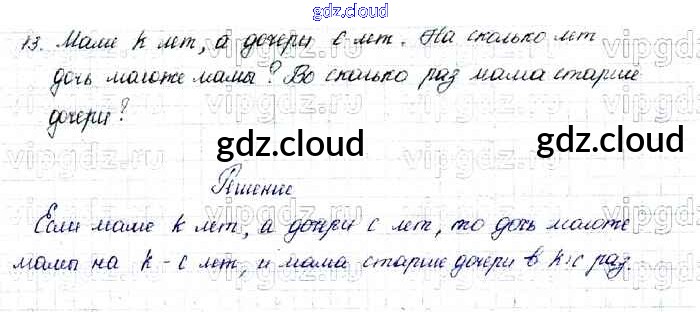 gdz.cloud
13. Маме k лет, а дочери c лет. На сколько лет
дочь моложе мамы? Во сколько раз мама старше
дочери?
gdz.cloud
gdz.cloud
Решение
Если маме k лет, а дочери c лет, то дочь моложе
мамы на k - c лет, и мама старше дочери в k:c раз.